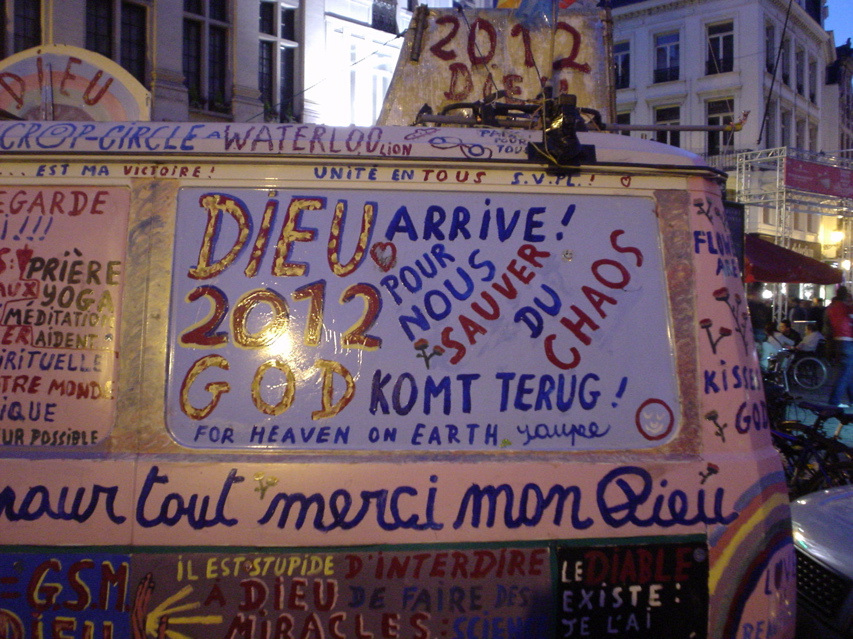 2012
DIEU
DIEU
CROP-CIRCLE A WATERLOO LION
... EST MA VICTOIRE! UNITÉ EN TOUS S.V.PL.!
EGARDE
!!!
PRIÈRE
YOGA
MÉDITATION
AIDENT
SPIRITUELLE
MONDE
POSSIBLE
DIEU ARRIVE!
2012 POUR NOUS SAUVER DU CHAOS
GOD KOMT TERUG!
FOR HEAVEN ON EARTH
KISSES
GOD
pour tout merci mon Dieu
= GSM
DIEU
IL EST STUPIDE D'INTERDIRE
À DIEU DE FAIRE DES
MIRACLES: SCIENCE
LE DIABLE
EXISTE:
JE L'AI